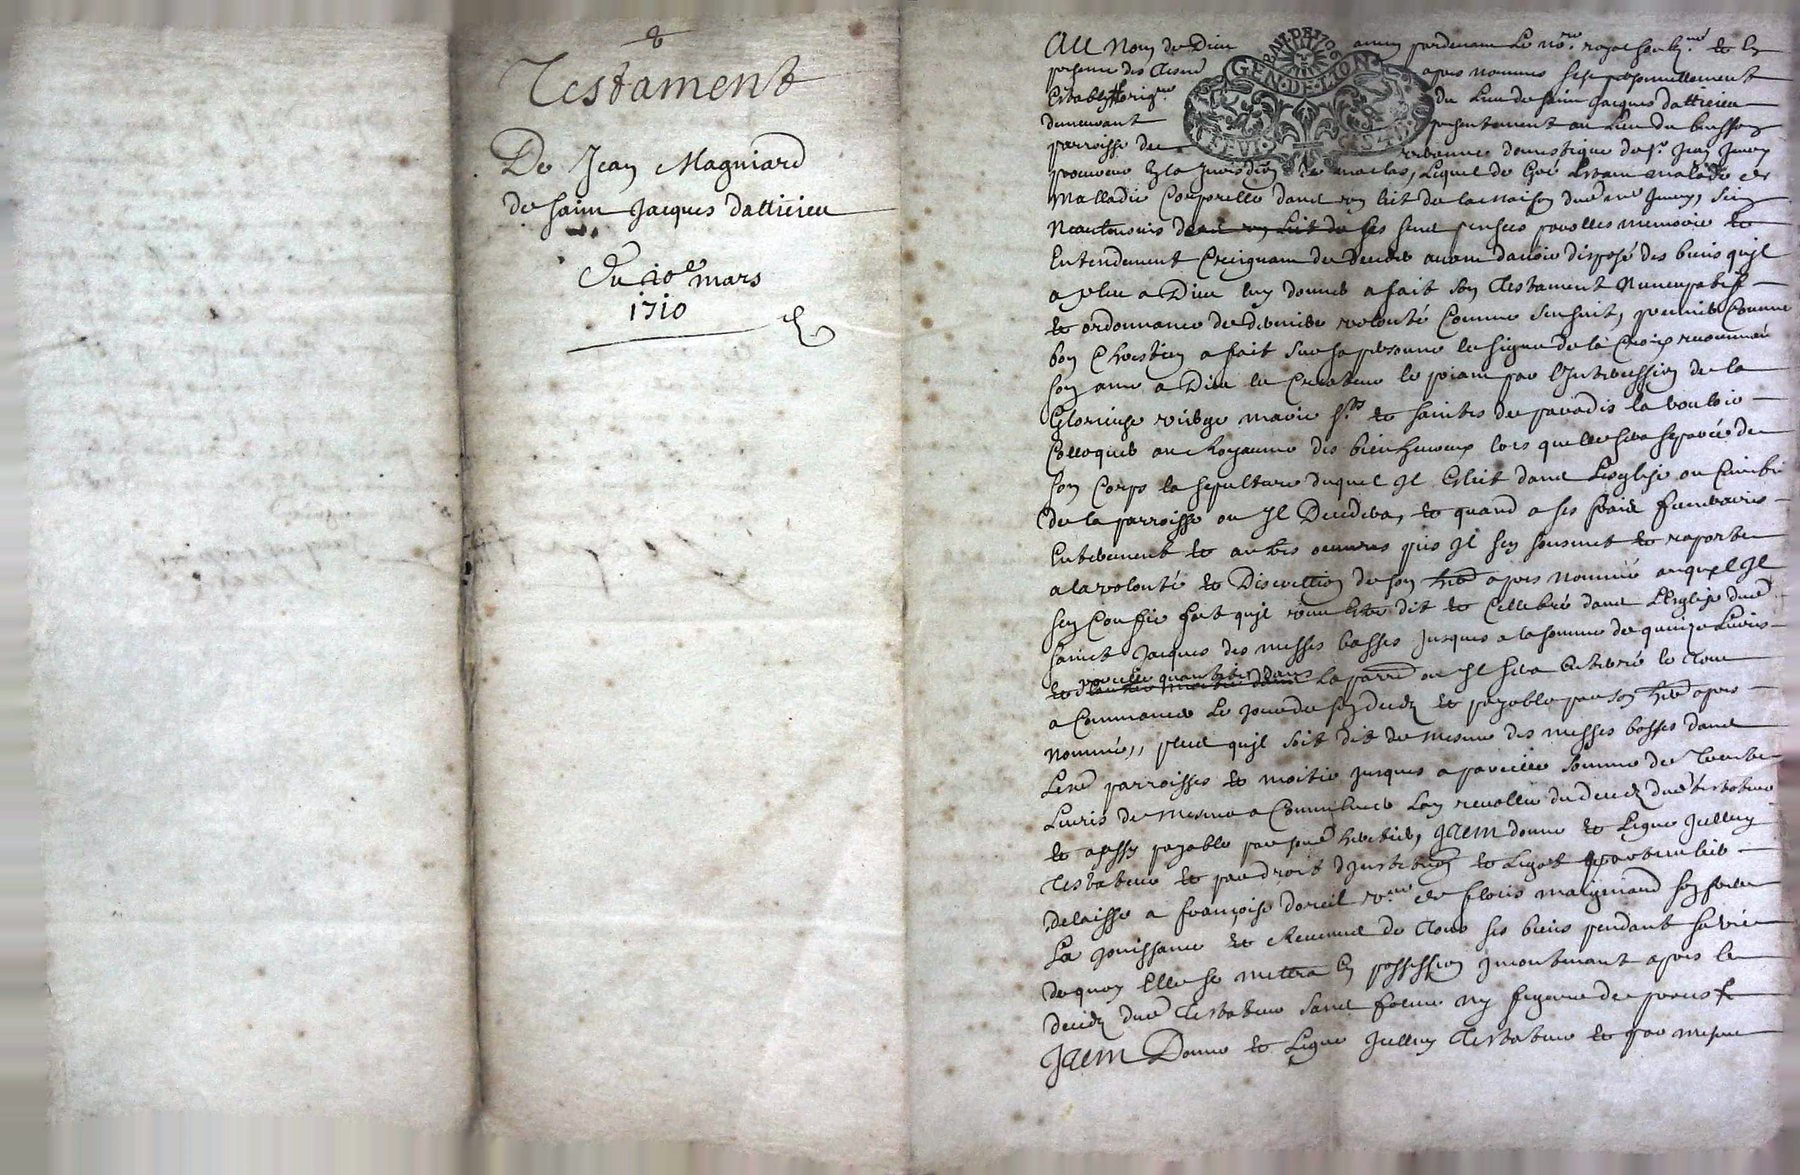 Testament
De Jean Magniard
de saint Jacques datticieu
Du 10e mars
1710
GEN. DE LION
Au Nom de Dieu amen pardevant Le nore royal soubzné et en
presence des tesmoins apres nommes fust personnellement
Estably du Lieu de saint Jacques datticieu
demeurant presentement au Lieu du buisson
parroisse de domestique de sr Jean
procureur En la Jurisdion de maclas, Lequel de gré Estant malade de
Malladie Corporelle dans son lit de la maison dud me
Neantmoins dans son Lit de ses sens pensees parolles memoire et
Entendement Creignant de deceder avant davoir disposé des biens quil
a plu a Dieu luy donner a fait son Testament Nuncupatif
et ordonnance de derniere volonté Comme sensuit, premier Comme
bon Chrestien a fait sur sa personne le signe de la Croix recommandé
son ame a Dieu le Createur le priant par l'Intercession de la
Glorieuse vierge marie sts et saintes de paradis la vouloir
Colloquer au Royaume des bienheureux lors quelle sera separée de
son Corps la sepulture duquel Il Eslit dans Lesglise ou Cimetie
de la parroisse ou Il Decedera, et quand a ses frais funeraires
Enterrement et autres oeuvres pies Il sen sousmet et raporte
a la volonté et Discretion de son here apres Nommé auquel Il
sen Confie fort quil veut Estre dit et Cellebré dans L'Eglise dud
sainct Jacques des messes basses Jusques a la somme de quinze Livres
et pareille quantité dans La parre ou Il sera Enterré le tout
a Commancer Le jour de son deces et payable par son here apres
nommé, plus quil soit dit de mesme des messes basses dans
Lesd parroisses et moitie jusques a pareille somme de trente
Livres de mesme a Commancer Lan revollu du deces dud testateur
et aussy payable par sond heritier, Item donne et Legue Icelluy
Testateur et par droit d'Institution et Legat particulier
delaisse a françoise doreil ve de floris maigniard sa
La Jouissance et Revenus de tous ses biens pendant sa vie
de quoy Elle se mettra En possession Incontinant apres le
deces dud Testateur sans forme ny figure de proces
Item Donne et Legue Icelluy Testateur et par mesme